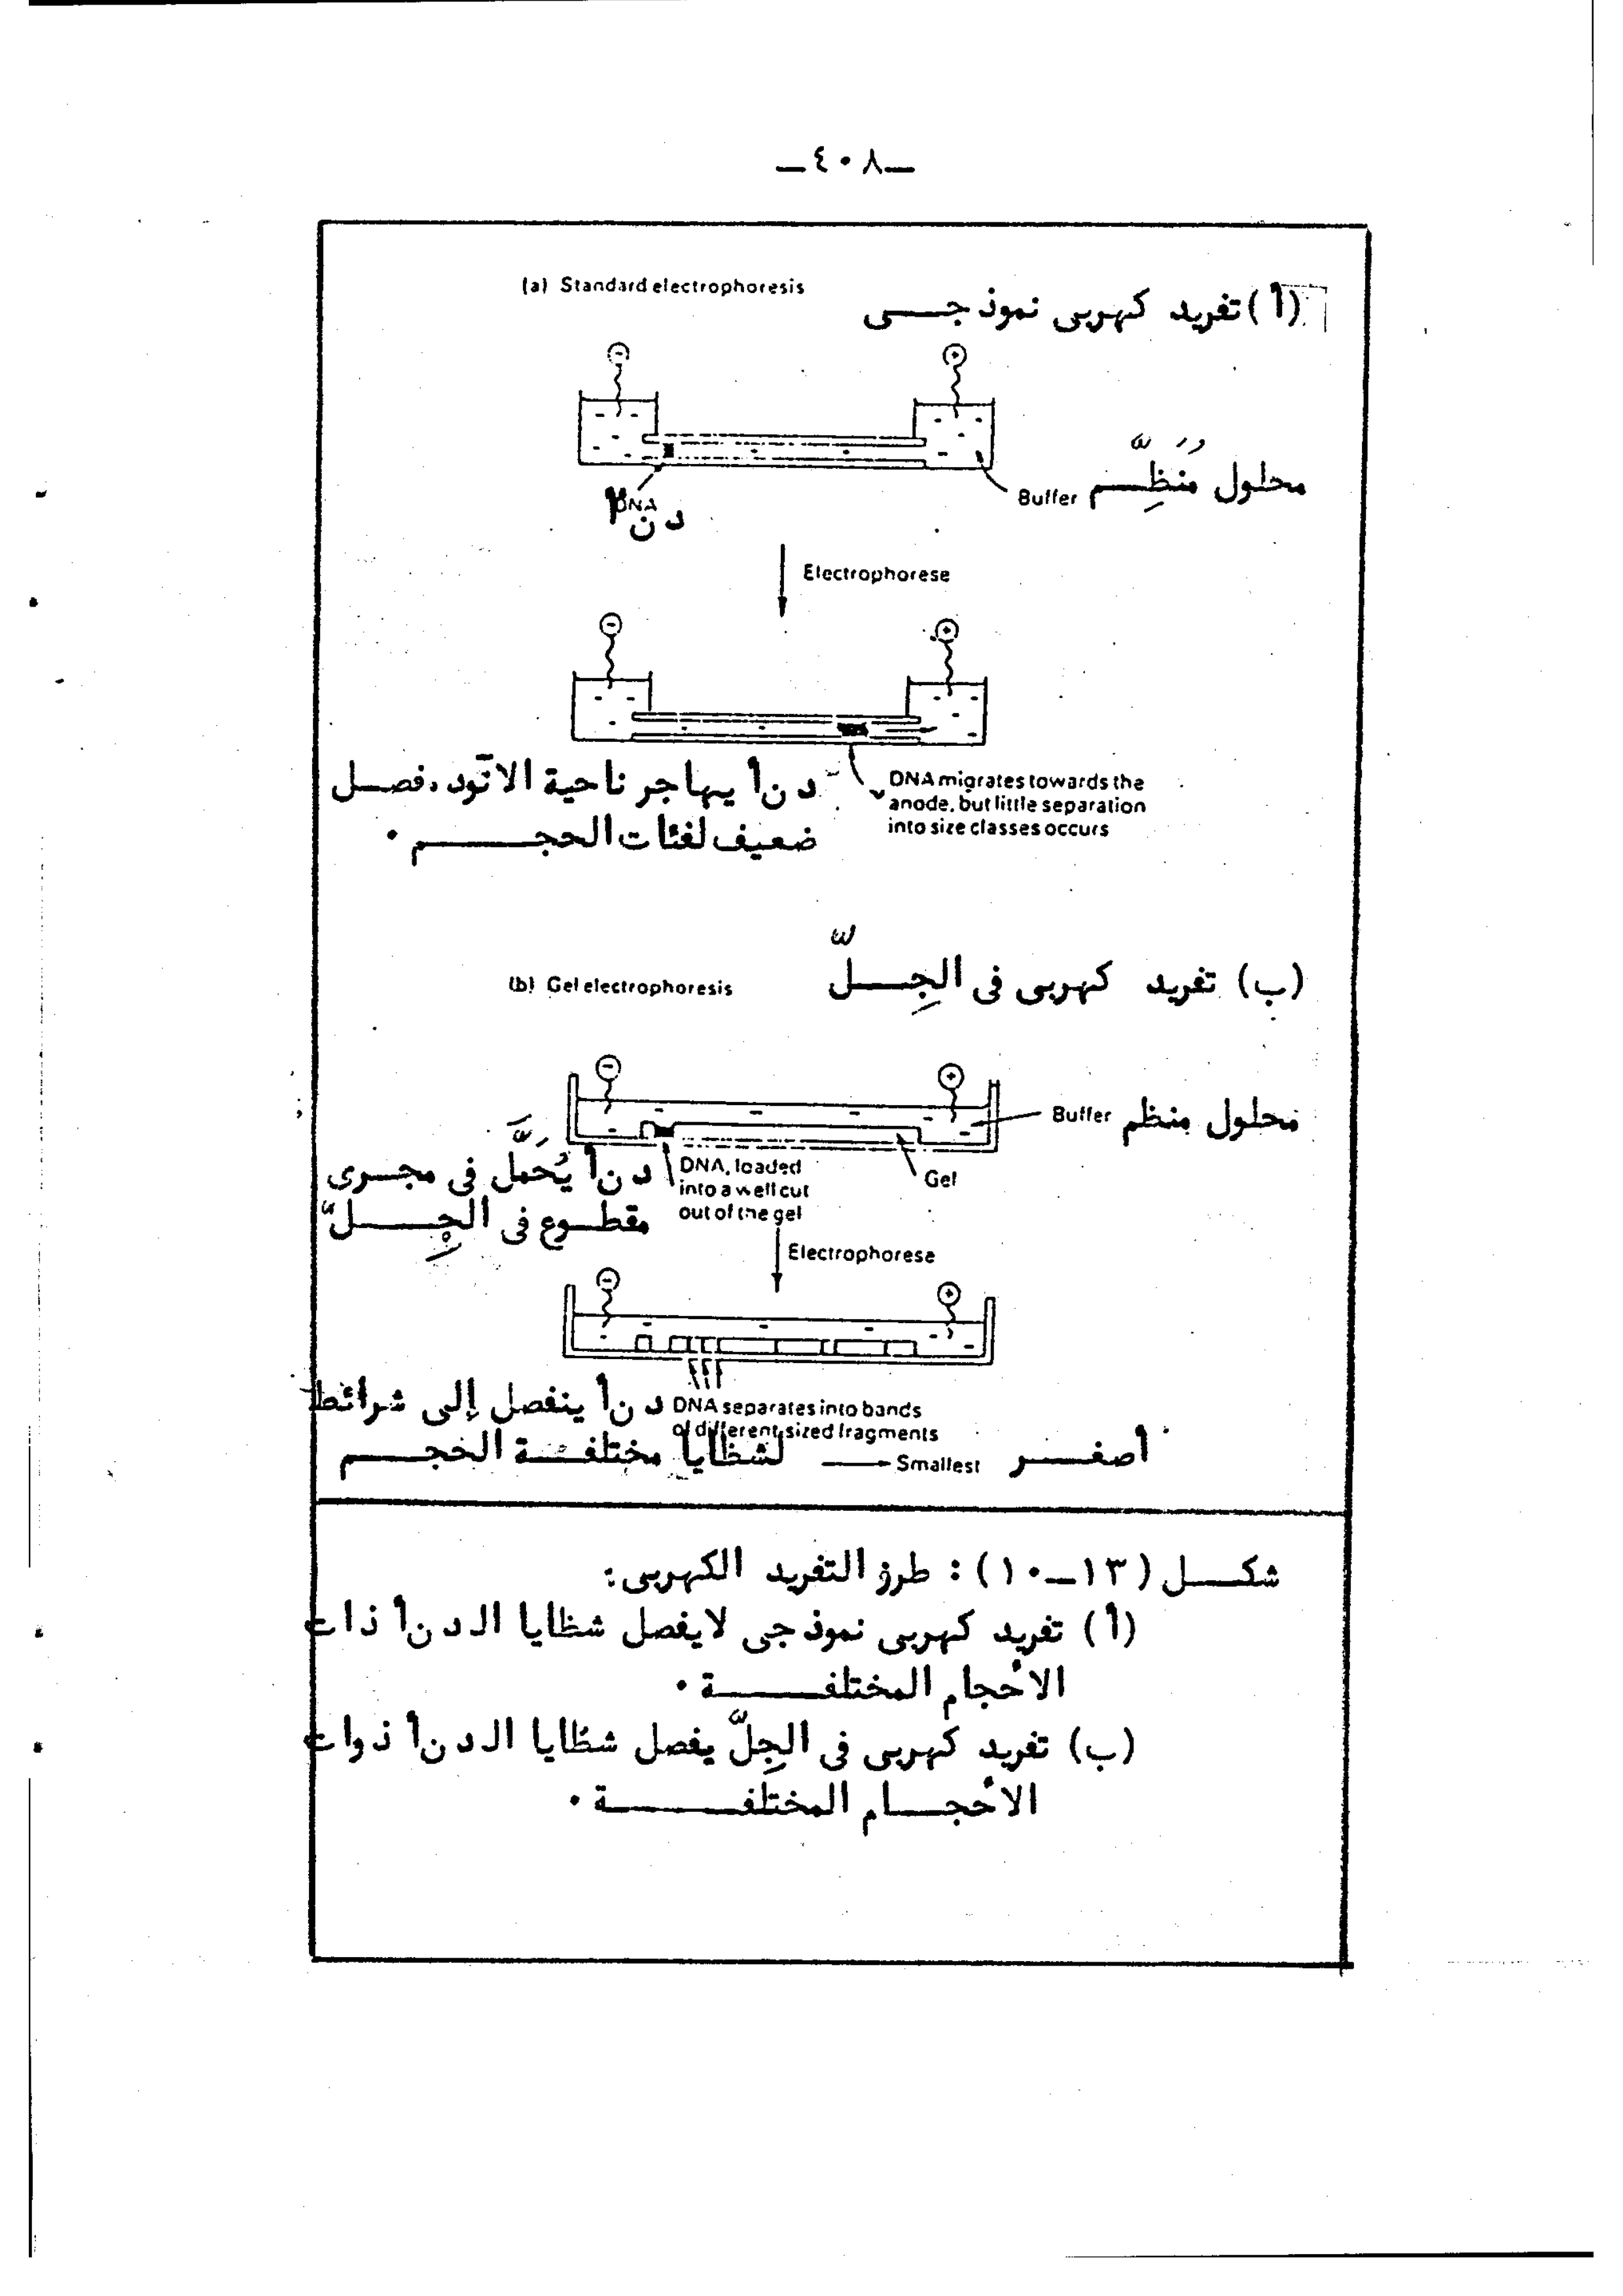 ـ٤٠٨ـ
(a) Standard electrophoresis
(أ) تفريد كهربى نموذجى
Buffer
محلول مُنَظِّم
DNA
د ن أ
Electrophorese
DNA migrates towards the
anode, but little separation
into size classes occurs
د ن أ يهاجر ناحية الآنود، فصل
ضعيف لفئات الحجم .
(b) Gel electrophoresis
(ب) تفريد كهربى فى الجِلّ
Buffer
محلول منظم
Gel
DNA, loaded
into a well cut
out of the gel
د ن أ يُحَمَّل فى مجرى
مقطوع فى الجِلّ
Electrophorese
DNA separates into bands
of different sized fragments
Smallest
أصغر
د ن أ ينفصل إلى شرائط
لشظايا مختلفة الحجم
شكل (١٣ـ١٠) : طرز التفريد الكهربى :
(أ) تفريد كهربى نموذجى لايفصل شظايا الـ د ن أ ذات
الأحجام المختلفة .
(ب) تفريد كهربى فى الجِلّ يفصل شظايا الـ د ن أ ذوات
الأحجام المختلفة .